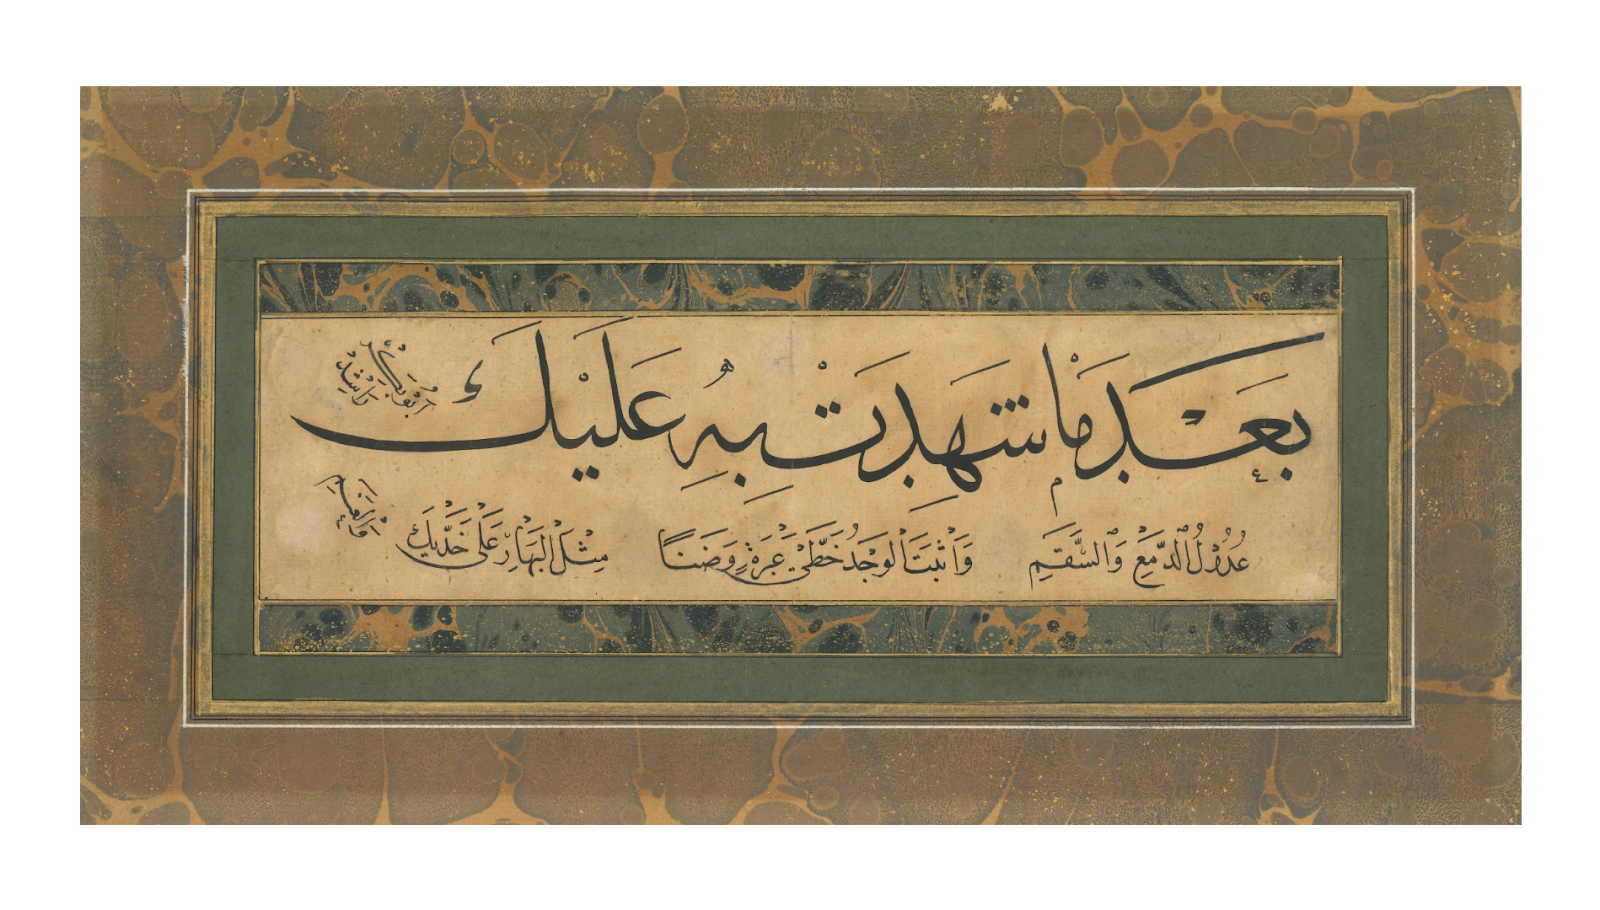 بَعْدَ مَا شَهِدَتْ بِهِ عَلَيْكَ
عُدُولُ الدَّمْعِ وَالسَّقَمِ وَاثْبَتَ الْوَجْدُ خَطَّيْ عَبْرَةٍ وَضَنًا مِثْلَ الْبَهَارِ عَلَى خَدَّيْكَ
وَالْعَنَمِ